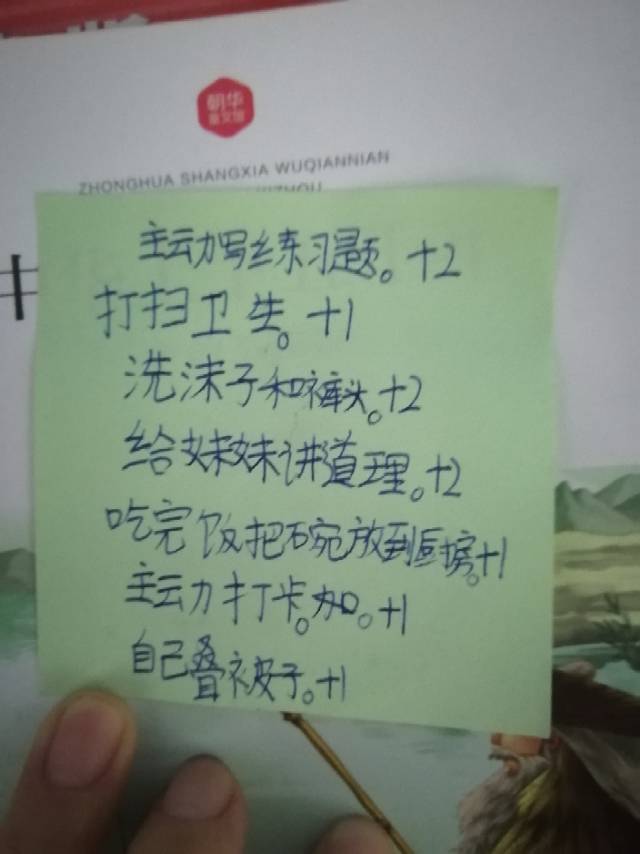 朝华
ZHONGHUA SHANGXIA WUQIANNIAN
主动写练习题。+2
打扫卫生。+1
洗沫子和裤头。+2
给妹妹讲道理。+2
吃完饭把碗放到厨房。+1
主动打卡。加。+1
自己叠被子。+1